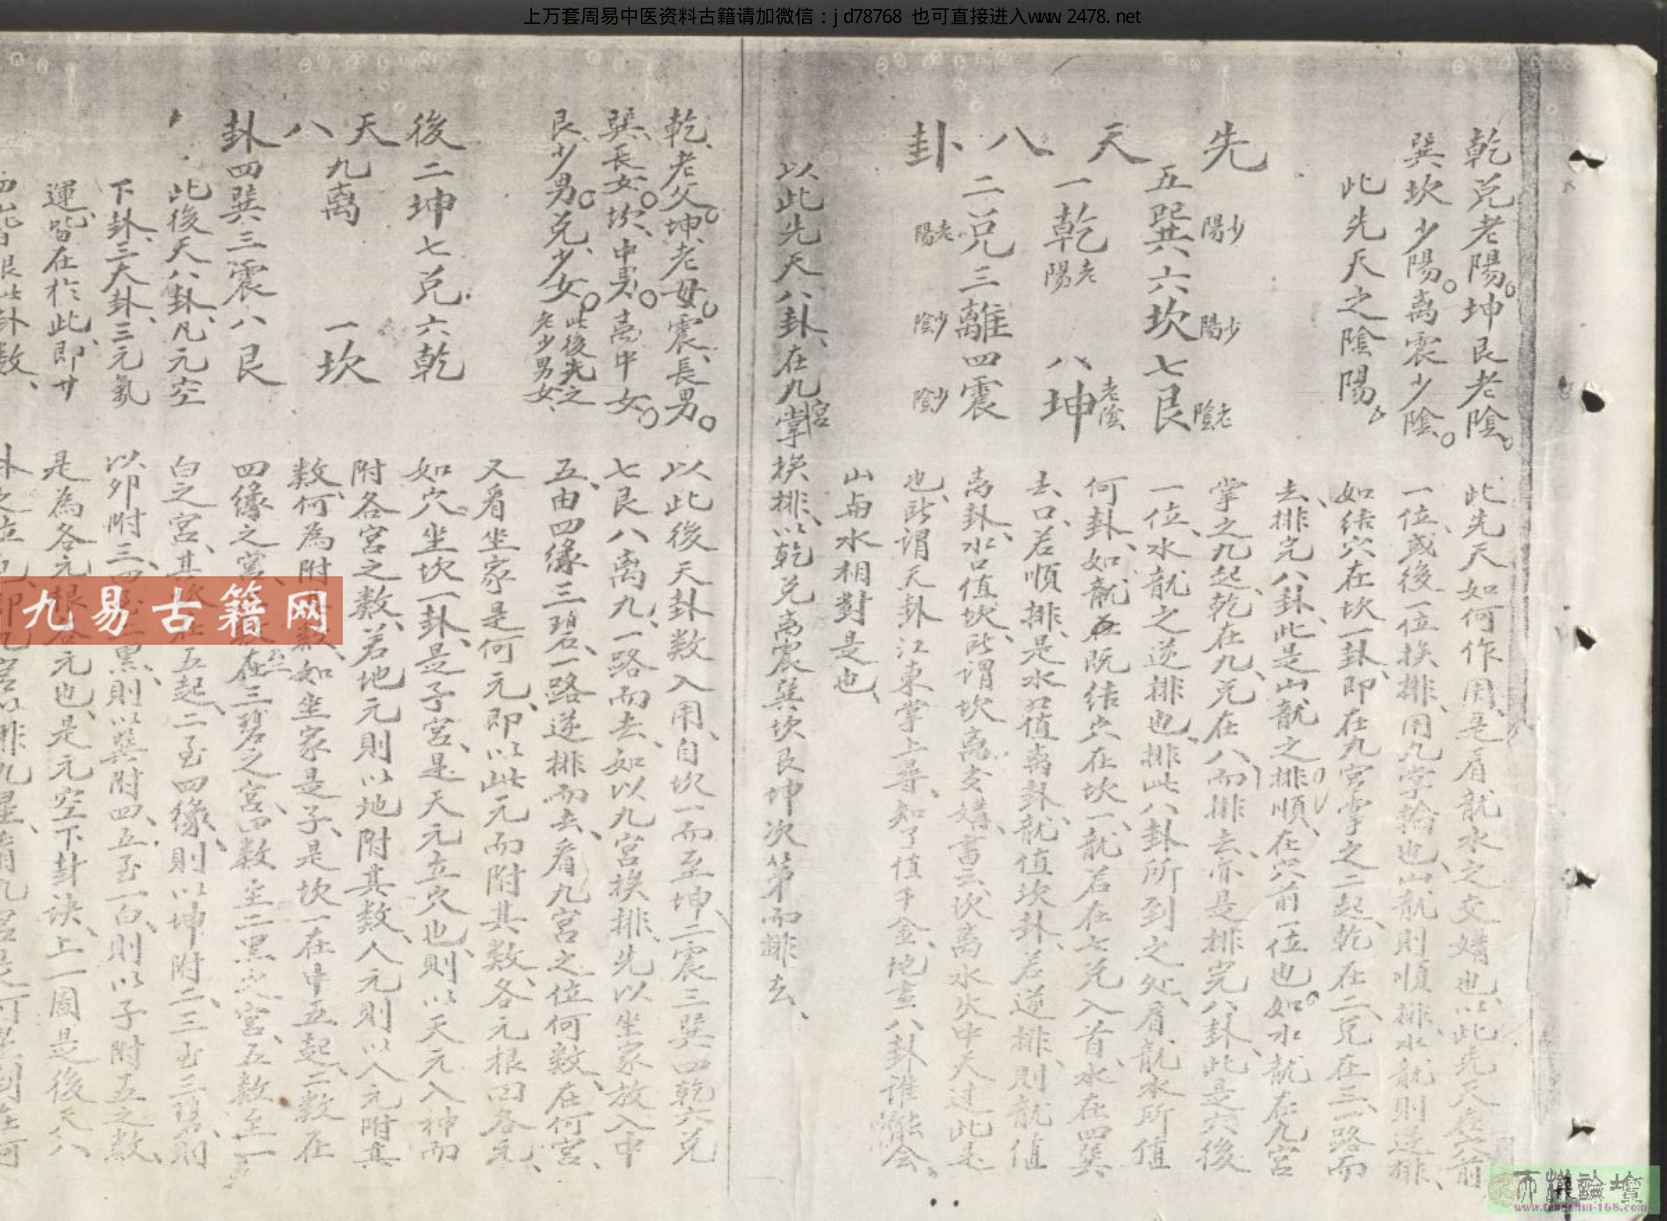 上万套周易中医资料古籍请加微信：jd78768 也可直接进入www.2478.net
乾兑老陽。坤艮老陰。
巽坎少陽。离震少陰。
此先天之陰陽。
先天八卦
五巽少陽六坎少陽七艮老陰
一乾老陽 八坤老陰
二兑老陽三離少陰四震少陰
此先天如何作用、是看龍水之交媾也、以此先天在穴前
一位、或後一位挨排、用九字輪也、山龍則順排、水龍則逆排、
如结穴在坎一卦、即在九宮掌之二起、乾在二、兑在三、一路而
去、排完八卦、此是山龍之排順、在穴前一位也、如水龍在九宮
掌之九起、乾在九、兑在八、而排去、亦是排完八卦、此是穴後
一位、水龍之逆排也、排此八卦所到之处、看龍水所值
何卦、如龍既结穴在坎一、龍若在七兑入首、水在四巽
去口、若順排、是水口值离卦、龍值坎卦、若逆排、則龍值
离卦、水口值坎、所謂坎离交媾、書云、坎离水火中天过、此是
也、所謂天卦江東掌上尋、知了值千金、地畫八卦谁能会、
山與水相對是也、
以此先天八卦、在九宮掌挨排、以乾兑离震巽坎艮坤次第而排去、
乾、老父。坤、老母。震、長男。
巽、長女。坎、中男。离、中女。
艮、少男。兑、少女。此後天之老少男女、
後天八卦
二坤七兑六乾
九离 一坎
四巽三震八艮
此後天八卦、凡元空
下卦、三大卦、三元氣
運、皆在於此、即廿
四山皆
以此後天卦数入用、自坎一而至坤二震三巽四乾六兑
七艮八离九、一路而去、如以九宮挨排、先以坐家放入中
五、由四绿三碧一路逆排而去、看九宮之位何数、在何宮、
又看坐家是何元、即以此元而附其数、各元根因各元、
如穴坐坎一卦、是子宮、是天元立穴也、則以天元入神而
附各宮之数、若地元則以地附其数、人元則以人元附其
数、何為附其数、如坐家是子、是坎一在中五起、二数在
四绿之宮、三数在三碧之宮、四数至二黑之宮、五数至一
白之宮、其五起、二至四绿、則以坤附二、三至三碧、則
以卯附三、四至二黑、則以巽附四、五至一白、則以子附五之数、
是為各元根各元也、是元空下卦诀、上一圖是後天八
九易古籍网